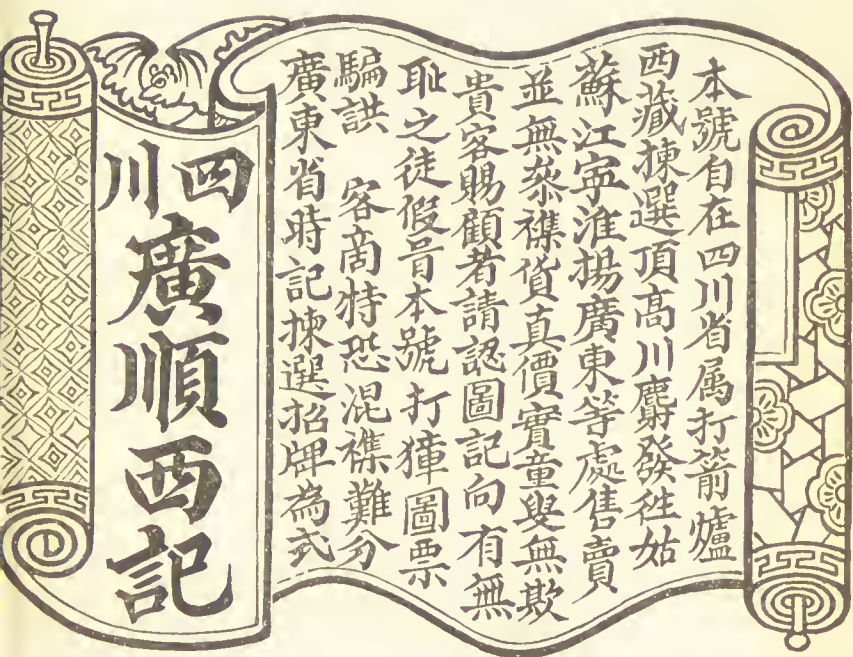 本號自在四川省属打箭爐
西藏揀選頂高川麝發徃姑
蘇江寜淮揚廣東等處售賣
並無叅襍貨真價實童叟無欺
貴客賜顧者請認圖記向有無
耻之徒假冐本號打獐圖票
騙誆 客啇特恐混襍難分
廣東省時記揀選招牌為式
四川
廣順西記